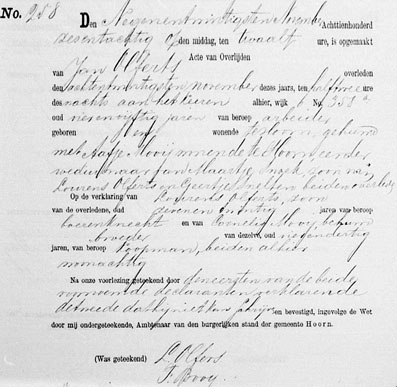 No. 258
Den Negenentwintigsten November Achttienhonderd
zesentachtig op den middag, ten twaalf ure, is opgemaakt
Acte van Overlijden
van Jan Olferts overleden
den achtentwintigsten november dezes jaars, ten half twee ure
des nachts aan het Keern alhier, wijk 6 No. 358a
oud jaren van beroep arbeider
geboren wonende alhier, gehuwd
met Aafje Mooij wonende te Hoorn, eerder
weduwnaar van Maartje zoon van
Lourens Olferts en Geertje beiden overleden
Op de verklaring van Lourens Olferts, zoon
van de overledene, oud zevenentwintig jaren van beroep
boerenknecht en van Cornelis Mooij, behuwd
broeder van dezelve, oud negendertig
jaren, van beroep koopman, beiden alhier
woonachtig
Na onze voorlezing geteekend door den eersten van de beide
voornoemde declaranten verklarende
de tweede dat hij niet kan schrijven bevestigd, ingevolge de Wet
door mij ondergeteekende, Ambtenaar van den burgerlijken stand der gemeente Hoorn.
(Was geteekend) L. Olfers